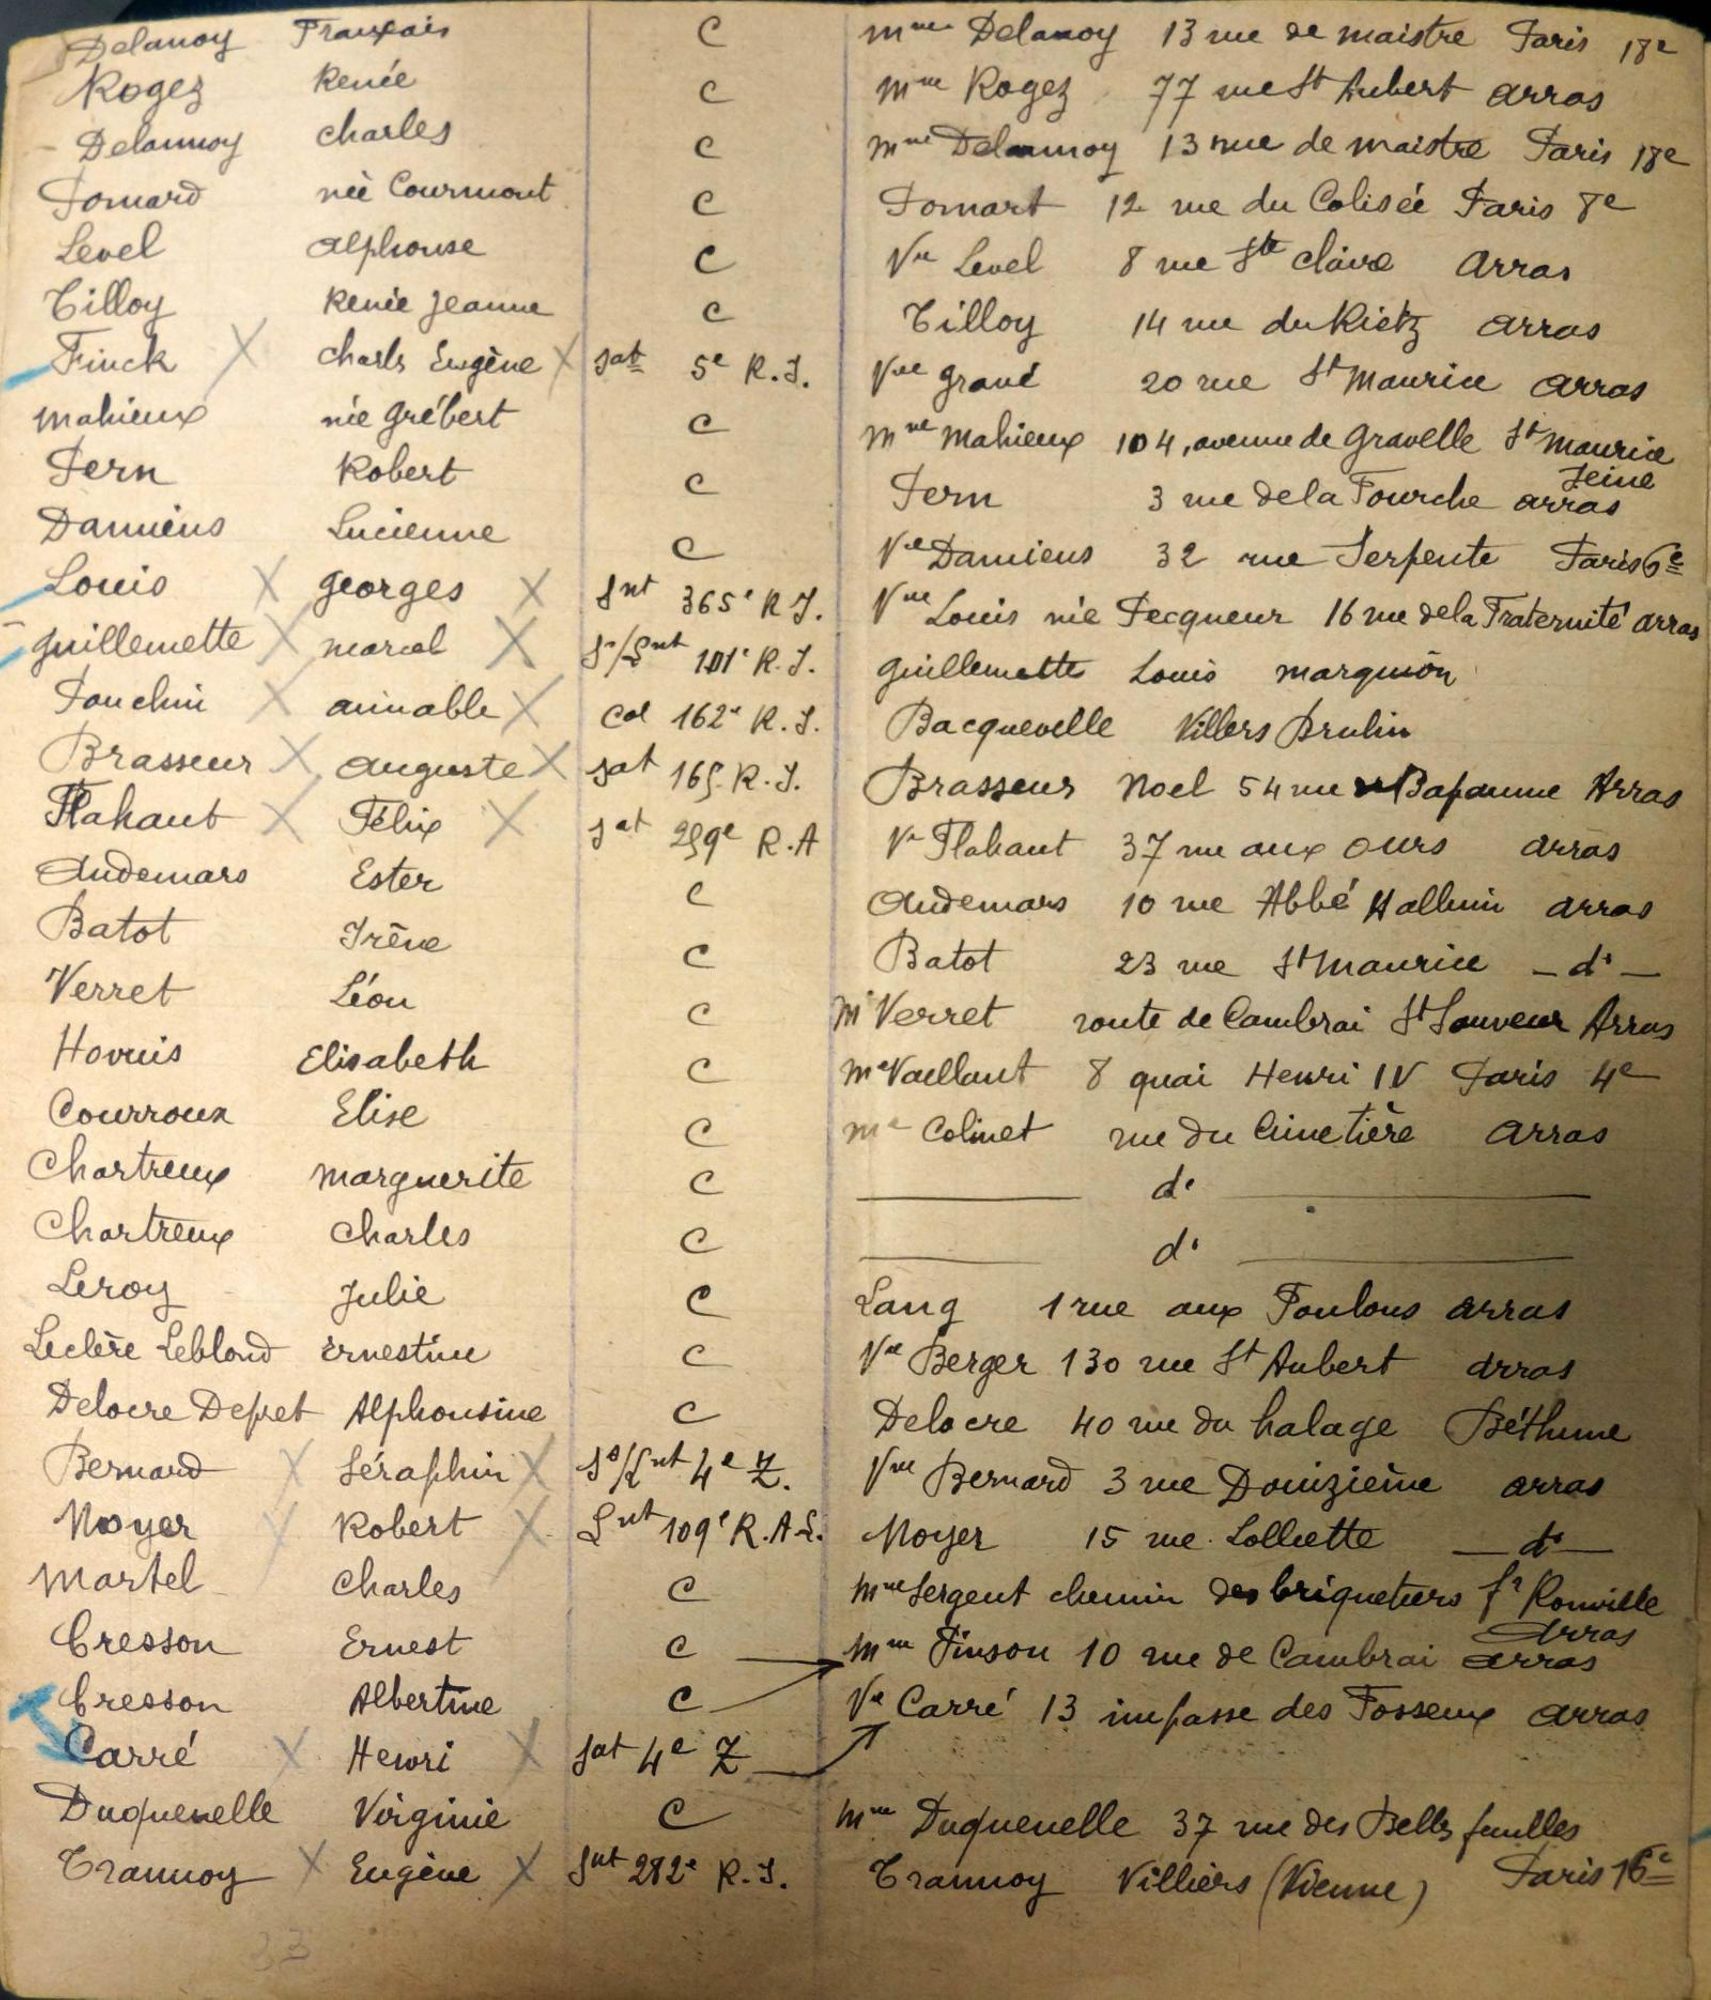 Delanoy Français C Mme Delanoy 13 rue de Maistre Paris 18e
Rogez Renée C Mme Rogez 77 rue St Aubert Arras
Delannoy Charles C Mme Delannoy 13 rue de Maistre Paris 18e
Pomard née Courmont C Pomart 12 rue du Colisée Paris 8e
Level Alphonse C Vve Level 8 rue Ste Claire Arras
Tilloy Renée Jeanne C Tilloy 14 rue du Rietz Arras
Finck X Charles Eugène X Sat 5e R.I. Vve Gravé 20 rue St Maurice Arras
Mahieux née Grébert C Mme Mahieux 104, avenue de Gravelle St Maurice
Seine
Pern Robert C Pern 3 rue de la Fourche Arras
Damiens Lucienne C Ve Damiens 32 rue Serpente Paris 6e
Louis X Georges X Snt 365e R.I. Vve Louis née Pecqueur 16 rue de la Fraternité Arras
Guillemette X Marcel X S/Lnt 101e R.I. Guillemette Louis Marquion
Fouchin X Aimable X Cal 162e R.I. Bacquevelle Villers Brulin
Brasseur X Auguste X Sat 165 R.I. Brasseur Noel 54 rue Bapaume Arras
Flahaut X Félix X Sat 259e R.A Ve Flahaut 37 rue aux Ours Arras
Audemars Ester C Audemars 10 rue Abbé Halluin Arras
Batot Irène C Batot 23 rue St Maurice — do —
Verret Léon C Mr Verret route de Cambrai St Sauveur Arras
Hovuis Elisabeth C Me Vaillant 8 quai Henri IV Paris 4e
Courroux Elise C Me Colinet rue du Cimetière Arras
Chartreux Marguerite C —— do ——
Chartreux Charles C —— do ——
Leroy Julie C Lang 1 rue aux Foulons Arras
Leclère Leblond Ernestine C Vve Berger 130 rue St Aubert Arras
Delocre Depret Alphonsine C Delocre 40 rue du halage Béthune
Bernard X Séraphin X S/Lnt 4e Z. Vve Bernard 3 rue Douizième Arras
Noyer X Robert X Lnt 109e R.A.L. Noyer 15 rue Lolliette — do —
Martel Charles C Mme Sergent chemin des briquetiers fg Ronville
Arras
Cresson Ernest C Mme Pinson 10 rue de Cambrai Arras
Cresson Albertine C Ve Carré 13 impasse des Fosseux Arras
Carré X Henri X Sat 4e Z
Duquenelle Virginie C Mme Duquenelle 37 rue des Belles feuilles
Paris 16e
Trannoy X Eugène X Snt 282e R.I. Trannoy Villiers (Vienne)
23